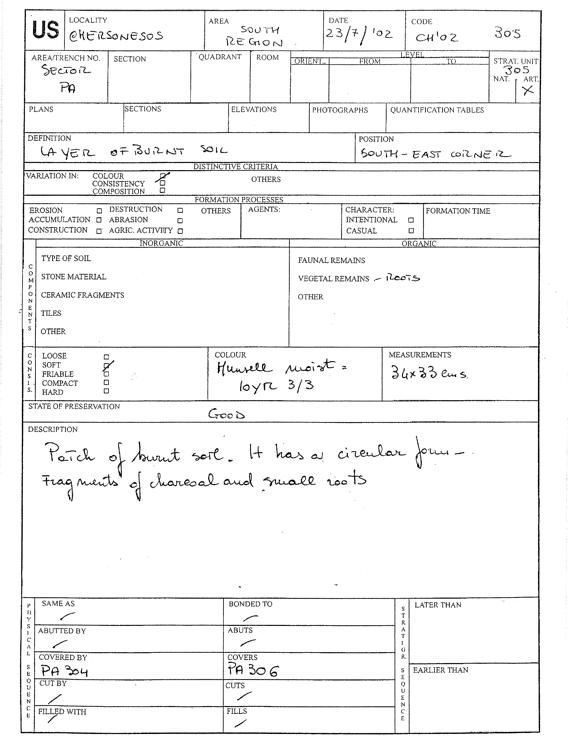 US
LOCALITY
@HERSONESOS
AREA SOUTH
REGION
DATE
23/7/'02
CODE
CH'02 305
AREA/TRENCH NO.
SECTOR
PA
SECTION
QUADRANT
ROOM
LEVEL
ORIENT. FROM TO
STRAT. UNIT
305
NAT. ART.
X
PLANS SECTIONS ELEVATIONS PHOTOGRAPHS QUANTIFICATION TABLES
DEFINITION
LAYER OF BURNT SOIL
POSITION
SOUTH-EAST CORNER
DISTINCTIVE CRITERIA
VARIATION IN: COLOUR OTHERS
CONSISTENCY
COMPOSITION
FORMATION PROCESSES
EROSION DESTRUCTION OTHERS AGENTS: CHARACTER: FORMATION TIME
ACCUMULATION ABRASION INTENTIONAL
CONSTRUCTION AGRIC. ACTIVITY CASUAL
INORGANIC ORGANIC
COMPONENTS
TYPE OF SOIL
STONE MATERIAL
CERAMIC FRAGMENTS
TILES
OTHER
FAUNAL REMAINS
VEGETAL REMAINS - ROOTS
OTHER
CONSIS.
LOOSE
SOFT
FRIABLE
COMPACT
HARD
COLOUR
Munsell moist =
10YR 3/3
MEASUREMENTS
34x33 cms.
STATE OF PRESERVATION
GOOD
DESCRIPTION
Patch of burnt soil. It has a circular form -
Fragments of charcoal and small roots
PHYSICAL SEQUENCE
SAME AS
BONDED TO
ABUTTED BY
ABUTS
COVERED BY
PA 304
COVERS
PA 306
CUT BY
CUTS
FILLED WITH
FILLS
STRATIGR. SEQUENCE
LATER THAN
EARLIER THAN